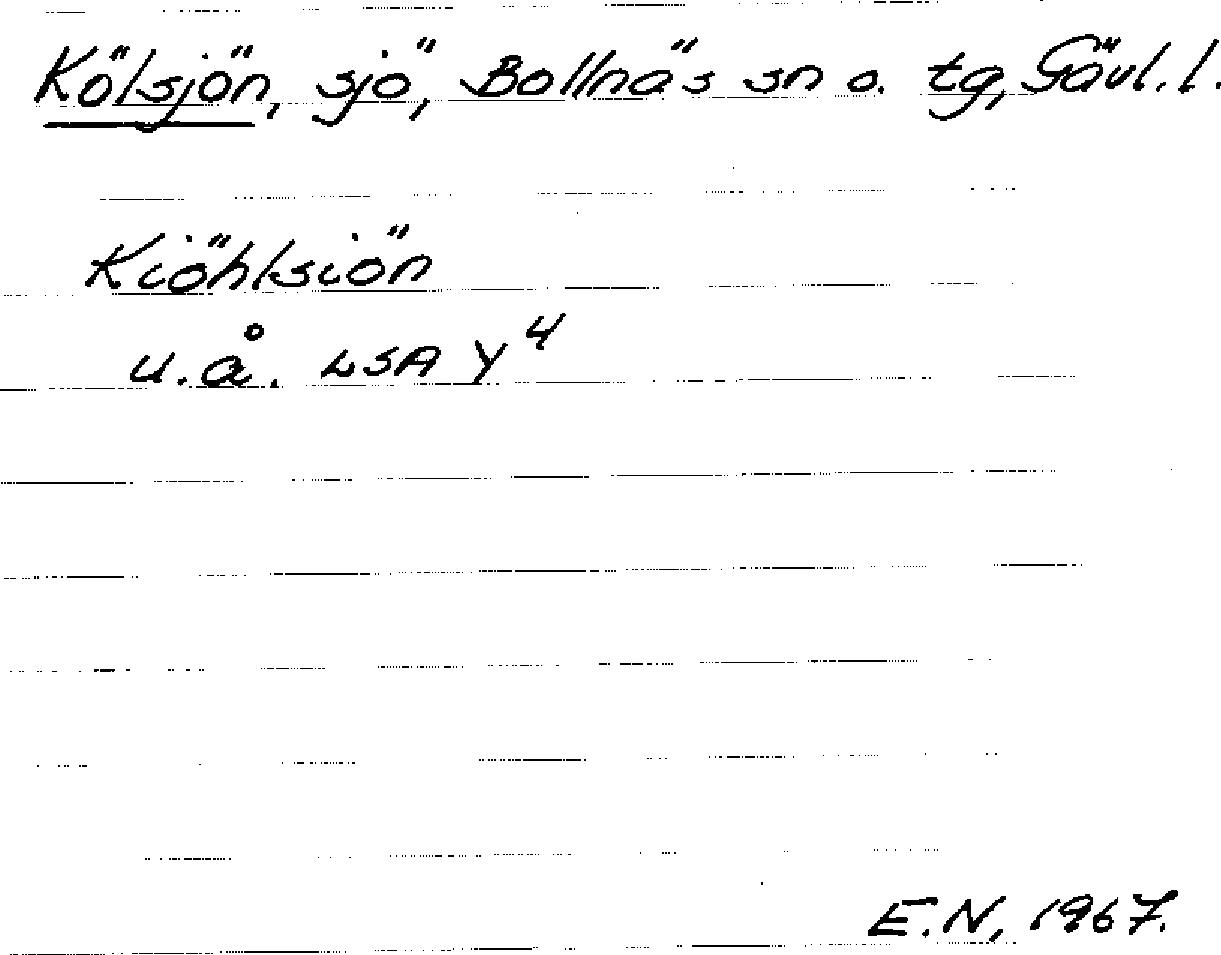 Kölsjön, sjö, Bollnäs sn o. tg, Gävl. l.
Kiöhlsiön
u.å. LSA Y 4
E.N, 1967.